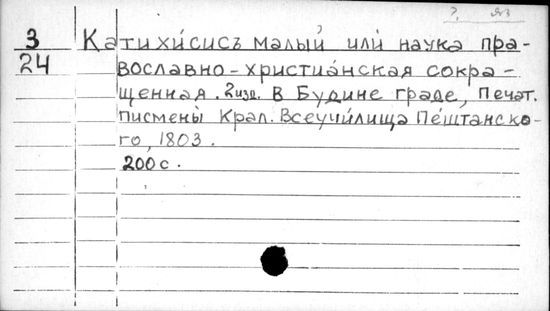 З Катихи́сисъ малый или́ наука пра-
24 вославно-христиа́нская сокра-
щенная. 2изд. В Будине граде, Печат.
писмены̀ Крал. Всеучи́лища Пе́штанско-
го, 1803.
200 с.